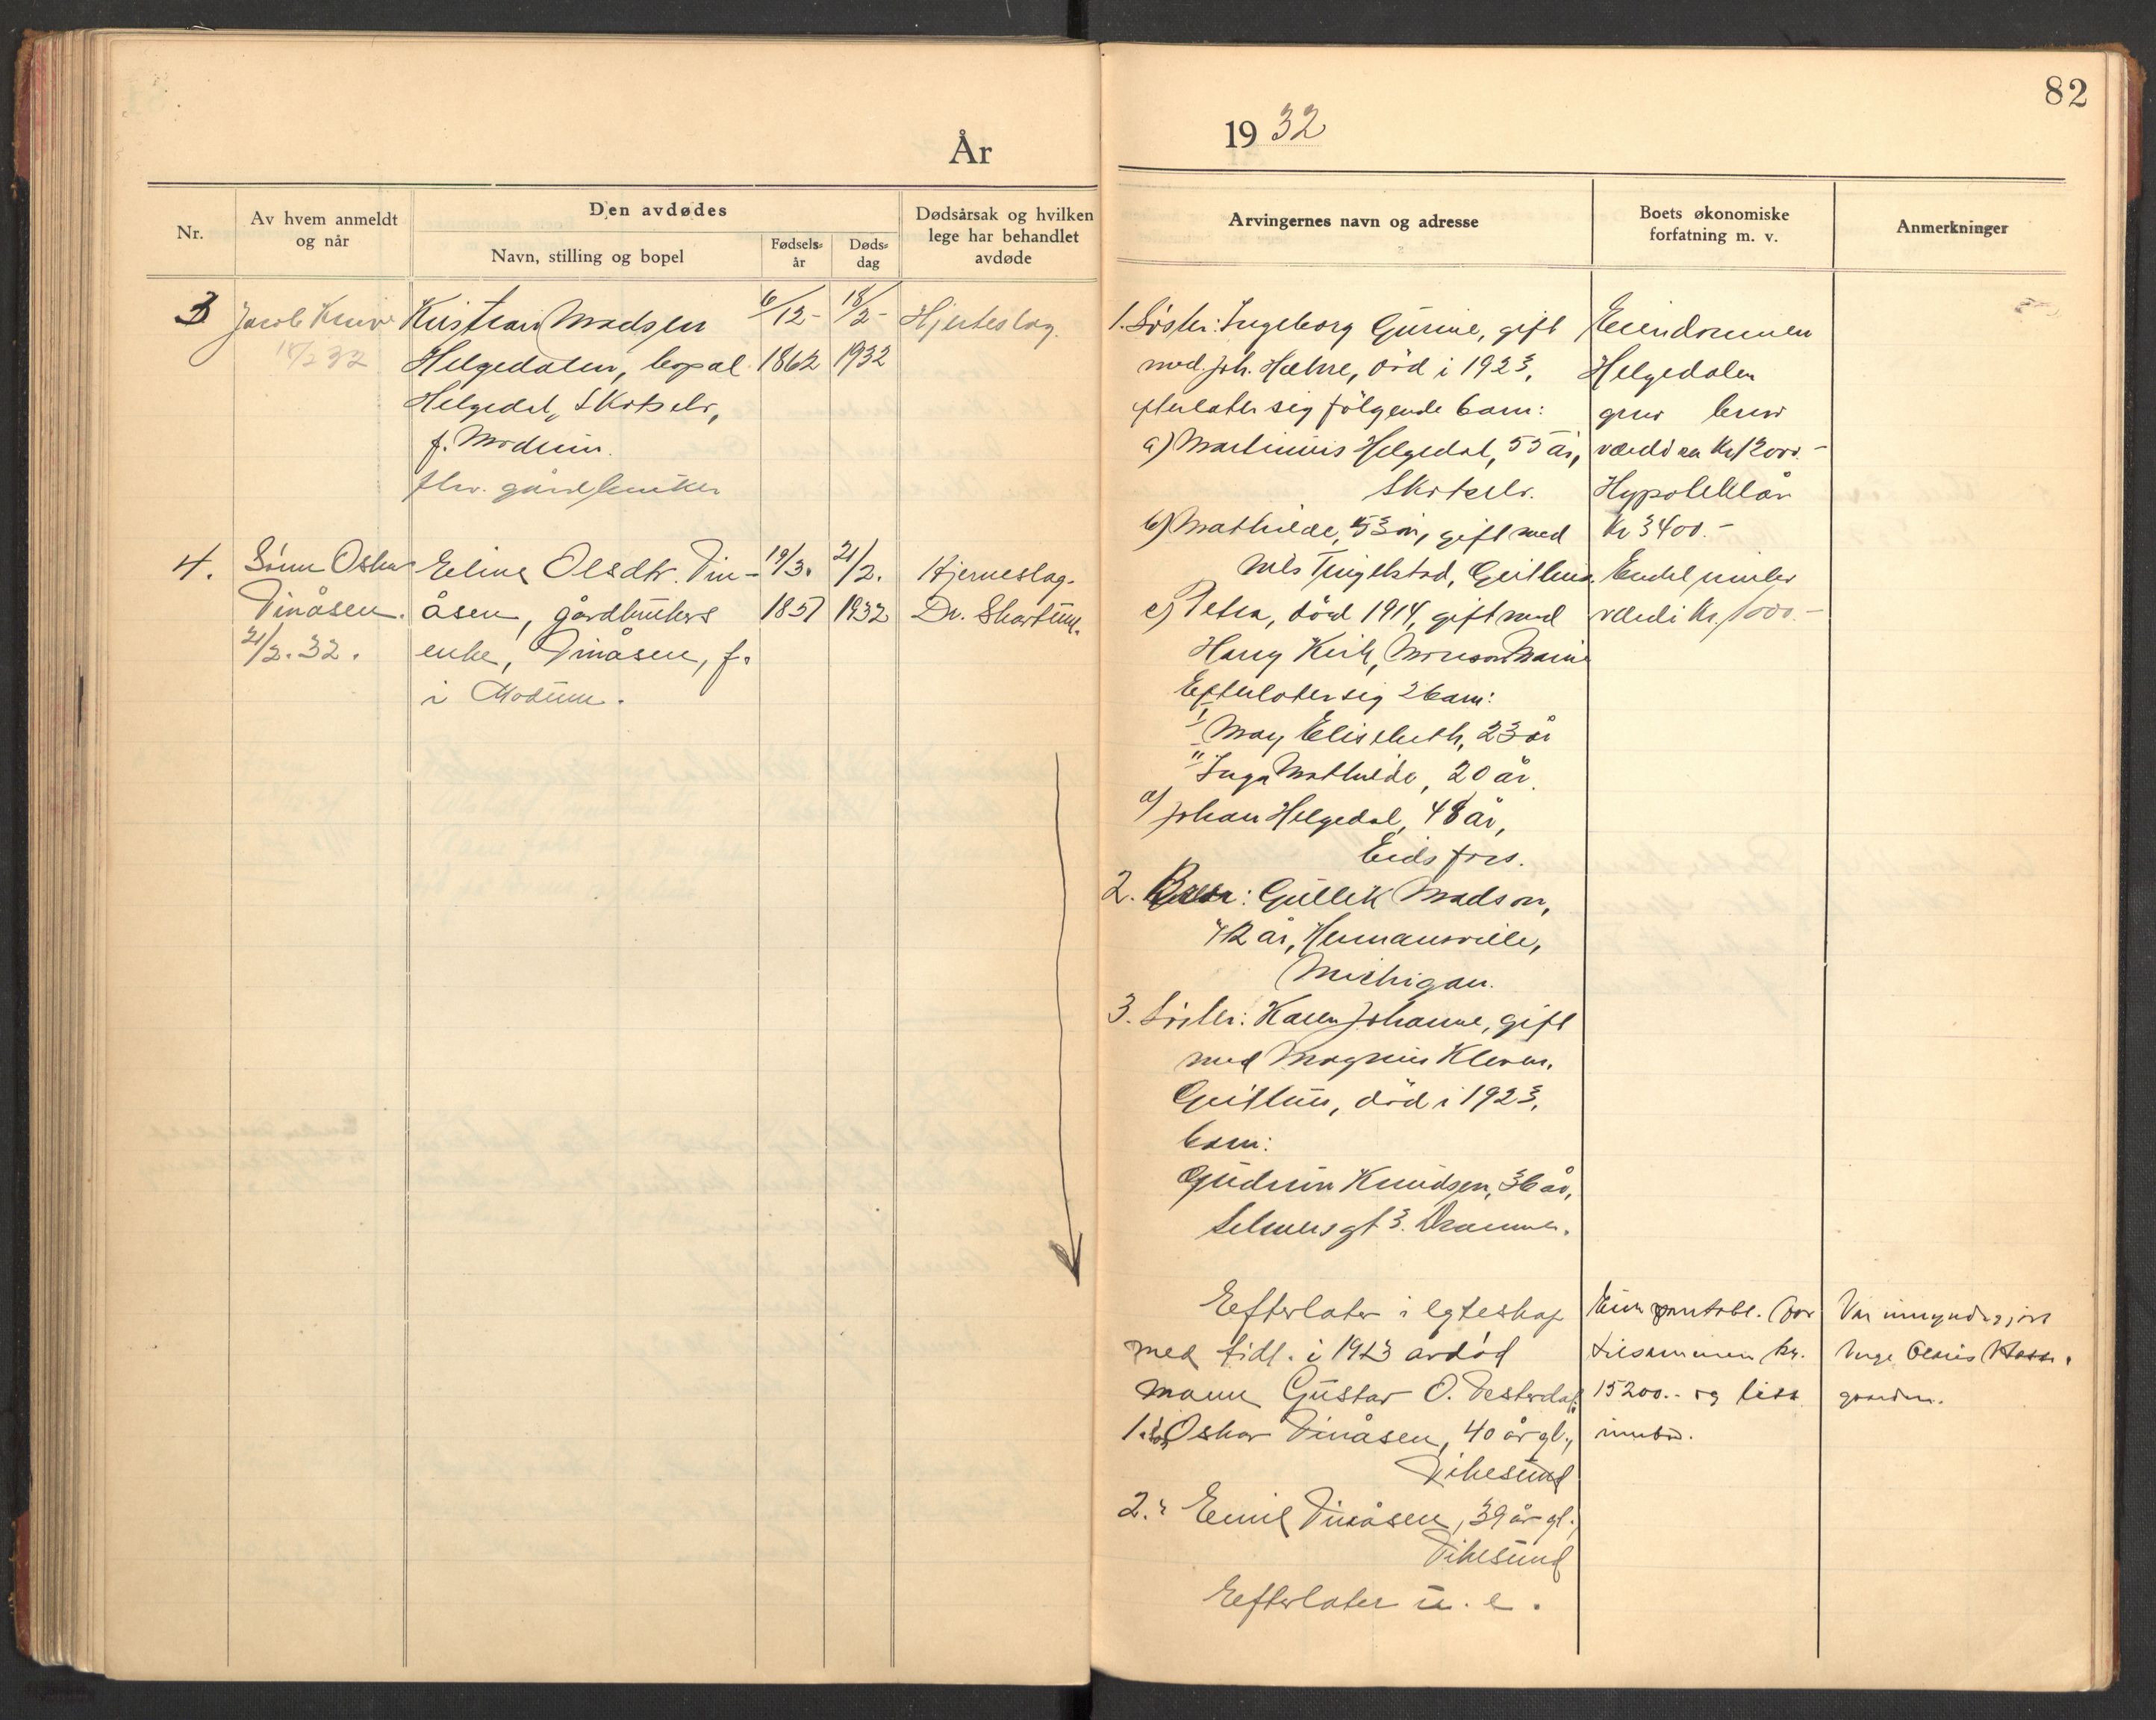 82
År
19 32
Nr.
Av hvem anmeldt
og når
Den avdødes
Navn, stilling og bopel
Fødsels-
år
Døds-
dag
Dødsårsak og hvilken
lege har behandlet
avdøde
Arvingernes navn og adresse
Boets økonomiske
forfatning m. v.
Anmerkninger
3
Jacob
18/2 32
Kristian Madsen
Helgedalen, bopæl
Helgedal, Skotselv,
f. Modum.
fhv. gårdbruker
6/12-
1862
18/2-
1932
Hjerteslag.
1. Søster: Ingeborg Gurine, gift
med Joh. Hæhre, död i 1923,
efterlater sig fölgende barn:
a) Martinius Helgedal, 55 år,
Skotselv.
b) Mathilde, 53 år, gift med
Nils Tingelstad, Geithus
c) Petra, död 1914, gift med
Harry Kirk,
Efterlater sig 2 barn:
May Elisabeth, 23 år
Inga Mathilde, 20 år.
d) Johan Helgedal, 48 år,
Eidsfoss.
2. Bror: Gullik Madson,
72 år, Hermansville,
Michigan.
3. Søster: Karen Johanne, gift
med Magnus Kleven,
Geithus, död i 1923,
barn:
Gudrun Knudsen, 36 år,
Selmersgt 3. Drammen.
Eiendommen
Helgedalen
gnr bnr
værdi ca Kr 12000.-
Hypoteklån
Kr 3400.-
Endel
værdi Kr. 1000.-
4.
Sønn Oskar
Vinåsen.
21/2. 32.
Eline Olsdtr. Vin-
åsen, gårdbrukers
enke, Vinåsen, f.
i Modum.
19/3.
1857
21/2.
1932
Hjerneslag.
Dr. Skartum.
Efterlater i egteskap
med tidl. i 1923 avdöd
mann Gustav O. Vesterdal:
1. Søn Oskar Vinåsen, 40 år gl.,
Vikesund
2. " Emil Vinåsen, 39 år gl.,
Vikesund
Efterlater u. e.
Eier pantobl. for
tilsammen kr.
15200.- og litt
innbo.
Var umyndiggjort
Verge